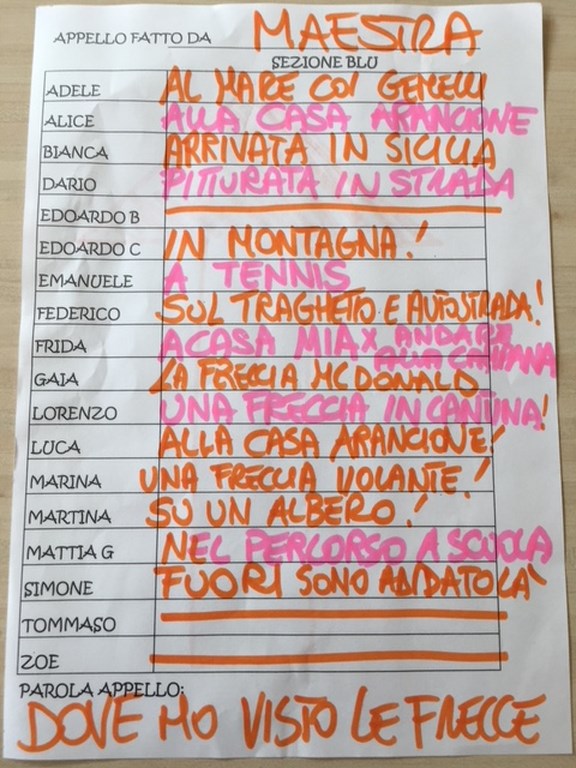 APPELLO FATTO DA MAESTRA
SEZIONE BLU
ADELE AL MARE COI GEMELLI
ALICE ALLA CASA ARANCIONE
BIANCA ARRIVATA IN SICILIA
DARIO PITTURATA IN STRADA
EDOARDO B
EDOARDO C IN MONTAGNA!
EMANUELE A TENNIS
FEDERICO SUL TRAGHETTO E AUTOSTRADA!
FRIDA A CASA MIA X ANDARE ALLA CAMPANA
GAIA LA FRECCIA MCDONALD
LORENZO UNA FRECCIA IN CANTINA!
LUCA ALLA CASA ARANCIONE!
MARINA UNA FRECCIA VOLANTE!
MARTINA SU UN ALBERO!
MATTIA G NEL PERCORSO A SCUOLA
SIMONE FUORI SONO ANDATO LÀ
TOMMASO
ZOE
PAROLA APPELLO:
DOVE HO VISTO LE FRECCE